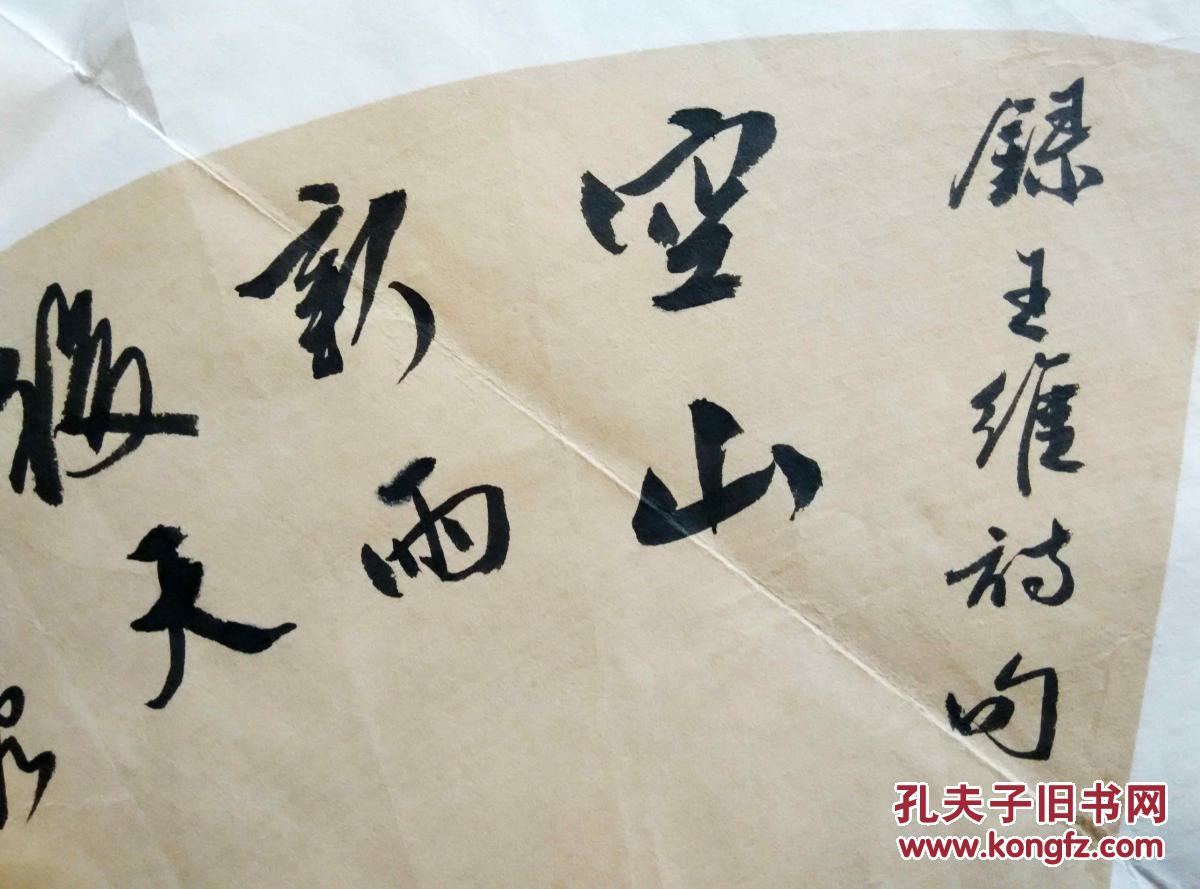 錄王維詩句
空山
新雨
後天
孔夫子旧书网
www.kongfz.com